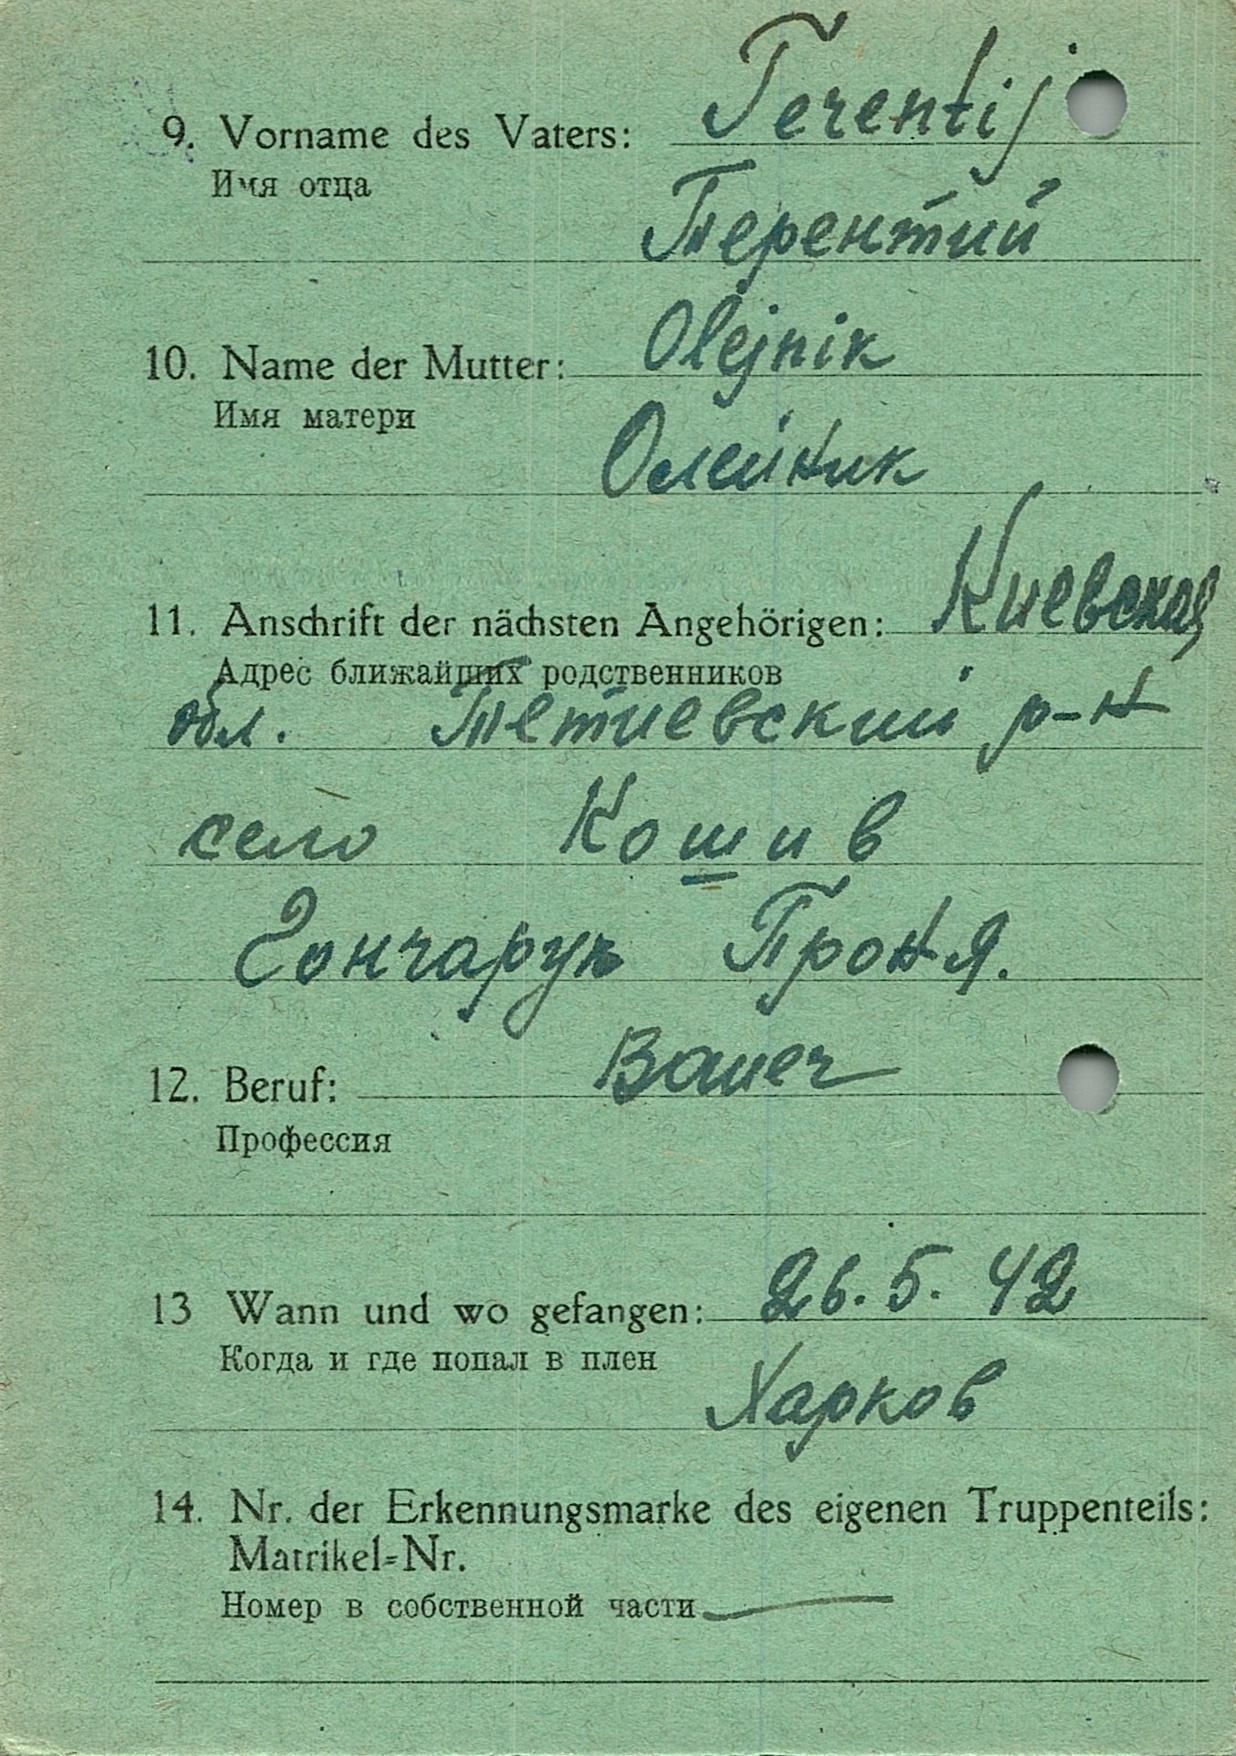 Terentij
9. Vorname des Vaters:
Имя отца
Терентий
Olejnik
10. Name der Mutter:
Имя матери
Олейник
11. Anschrift der nächsten Angehörigen: Киевская
Адрес ближайших родственников
обл. Тетиевский р-н
село Кошив
Гончарук Проня.
12. Beruf: Bauer
Профессия
13 Wann und wo gefangen: 26.5.42
Когда и где попал в плен
Харков
14. Nr. der Erkennungsmarke des eigenen Truppenteils:
Matrikel=Nr.
Номер в собственной части —